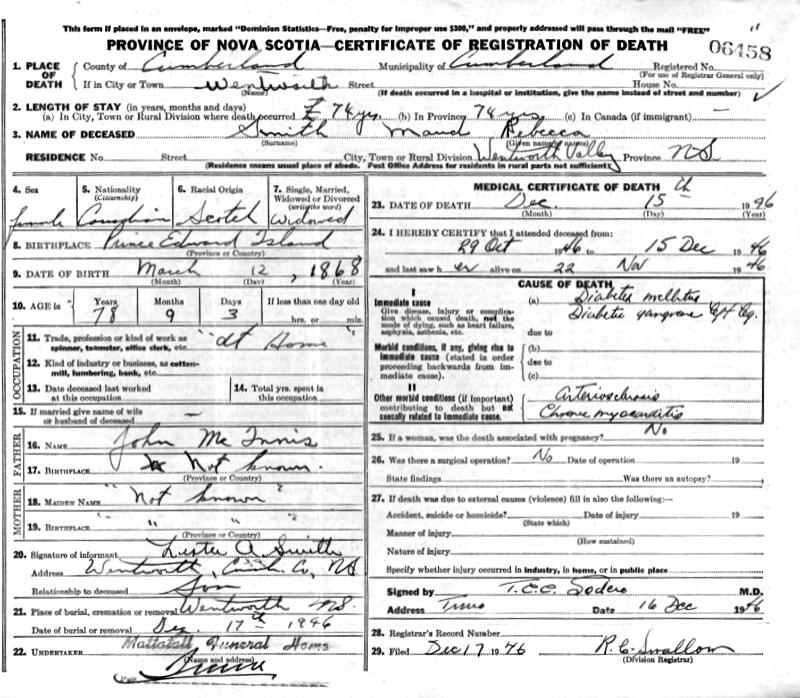 This form if placed in an envelope, marked "Dominion Statistics—Free, penalty for improper use $300," and properly addressed will pass through the mail "FREE"
PROVINCE OF NOVA SCOTIA—CERTIFICATE OF REGISTRATION OF DEATH
06458
1. PLACE OF DEATH County of Cumberland Municipality of Cumberland Registered No.
(For use of Registrar General only)
If in City or Town Wentworth Street House No.
(Name) (If death occurred in a hospital or institution, give the name instead of street and number)
2. LENGTH OF STAY (in years, months and days)
(a) In City, Town or Rural Division where death occurred 74 yrs. (b) In Province 74 yrs. (c) In Canada (if immigrant) —
3. NAME OF DECEASED Smith Maud Rebecca
(Surname) (Given name or names)
RESIDENCE No. Street City, Town or Rural Division Wentworth Valley Province NS
(Residence means usual place of abode. Post Office Address for residents in rural parts not sufficient)
4. Sex female
5. Nationality (Citizenship) Canadian
6. Racial Origin Scotch
7. Single, Married, Widowed or Divorced (write the word) Widowed
8. BIRTHPLACE Prince Edward Island
(Province or Country)
9. DATE OF BIRTH March 12, 1868
(Month) (Day) (Year)
10. AGE is Years Months Days If less than one day old
78 9 3 hrs. or min.
OCCUPATION
11. Trade, profession or kind of work as spinner, teamster, office clerk, etc. "At Home"
12. Kind of industry or business, as cotten-mill, lumbering, bank, etc.
13. Date deceased last worked at this occupation
14. Total yrs. spent in this occupation
15. If married give name of wife or husband of deceased —
FATHER
16. NAME John Mc Innis
17. BIRTHPLACE Not known.
(Province or Country)
MOTHER
18. MAIDEN NAME "Not known"
19. BIRTHPLACE " " "
(Province or Country)
20. Signature of informant Lester A. Smith
Address Wentworth, Cumb. Co, NS
Relationship to deceased Son
21. Place of burial, cremation or removal Wentworth NS.
Date of burial or removal Dec. 17th 1946
22. UNDERTAKER Mattatall Funeral Home
(Name and address)
Truro
MEDICAL CERTIFICATE OF DEATH
23. DATE OF DEATH Dec. 15th 1946
(Month) (Day) (Year)
24. I HEREBY CERTIFY that I attended deceased from:
29 Oct 1946 to 15 Dec 1946
and last saw her alive on 22 Nov 1946
CAUSE OF DEATH
I
Immediate cause
Give disease, injury or complication which caused death, not the mode of dying, such as heart failure, asphyxia, asthenia, etc.
(a) Diabetes mellitus
Diabetic gangrene left leg.
due to
Morbid conditions, if any, giving rise to immediate cause (stated in order proceeding backwards from immediate cause).
(b)
due to
(c)
II
Other morbid conditions (if important) contributing to death but not causally related to immediate cause.
Arteriosclerosis
Chronic myocarditis
25. If a woman, was the death associated with pregnancy? No
26. Was there a surgical operation? No Date of operation 19
State findings Was there an autopsy?
27. If death was due to external causes (violence) fill in also the following:—
Accident, suicide or homicide? Date of injury 19
(State which)
Manner of injury
(How sustained)
Nature of injury
Specify whether injury occurred in industry, in home, or in public place
Signed by T.C.C. Sodero M.D.
Address Truro Date 16 Dec 1946
28. Registrar's Record Number
29. Filed Dec 17 1946 R. C. Swallow
(Division Registrar)